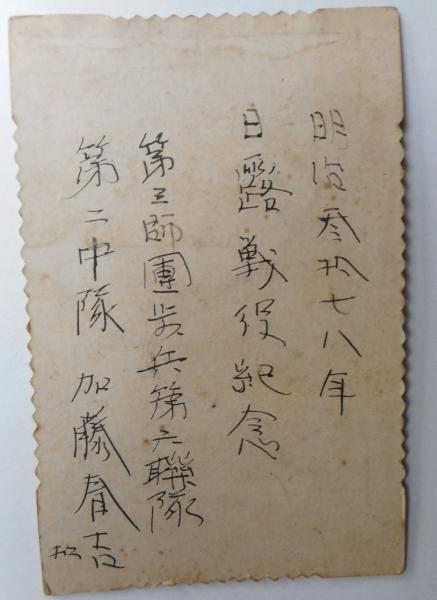 明治叁拾七八年
日露戦役紀念
第三師團歩兵第六聯隊
第二中隊 加藤春吉